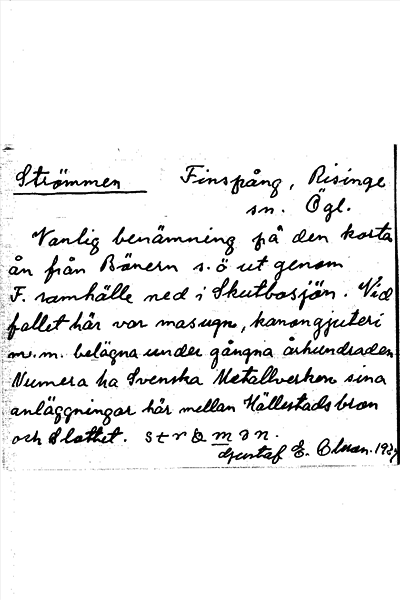 Strömmen Finspång, Risinge
sn. Ögl.
Vanlig benämning på den korta
ån från Bönern s.ö ut genom
F. samhälle ned i Skutbosjön. Vid
fallet här var masugn, kanongjuteri
m.m. belägna under gångna århundraden
Numera ha Svenska Metallverken sina
anläggningar här mellan Hällestadsbron
och Slottet.
Gustaf E. Olsson.